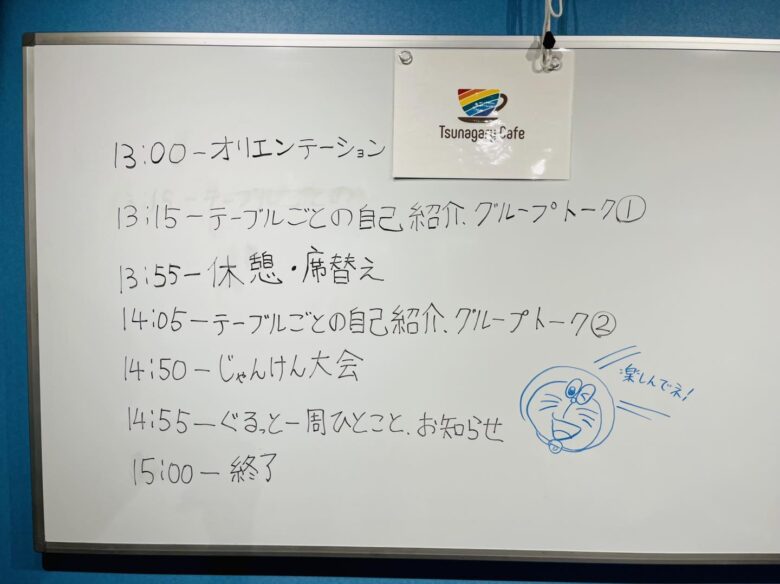 Tsunagary Cafe
13:00-オリエンテーション
13:15-テーブルごとの自己紹介、グループトーク①
13:55-休憩・席替え
14:05-テーブルごとの自己紹介、グループトーク②
14:50-じゃんけん大会
楽しんでネ!
14:55-ぐるっと一周ひとこと、お知らせ
15:00-終了